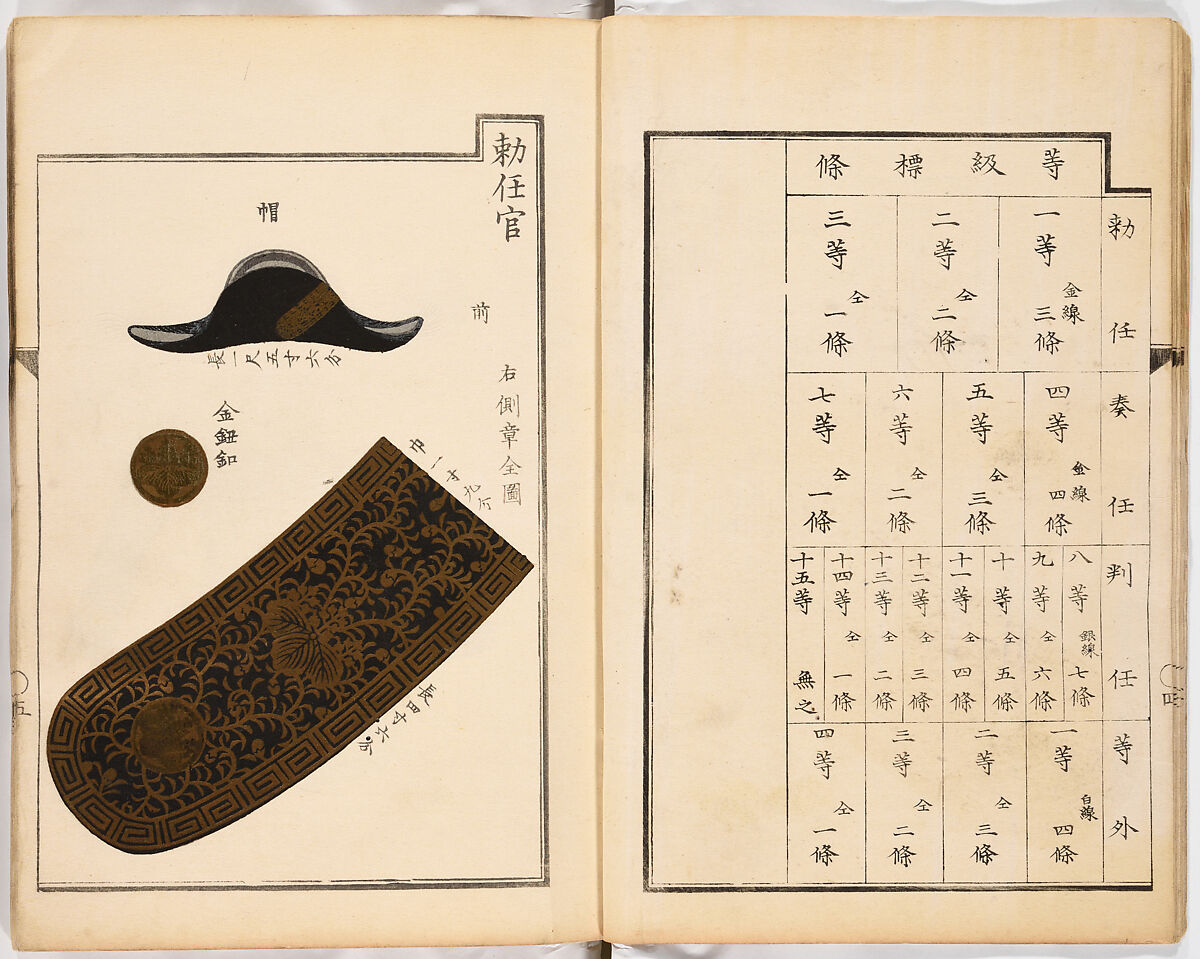 等級標條
勅任
一等 金線 三條
二等 仝 二條
三等 仝 一條
奏任
四等 金線 四條
五等 仝 三條
六等 仝 二條
七等 仝 一條
判任
八等 銀線 七條
九等 仝 六條
十等 仝 五條
十一等 仝 四條
十二等 仝 三條
十三等 仝 二條
十四等 仝 一條
十五等 無之
等外
一等 白線 四條
二等 仝 三條
三等 仝 二條
四等 仝 一條
〇四
勅任官
帽
前
長一尺五寸六分
右側章全圖
金鈕釦
巾一寸九分
長四寸六分
〇五